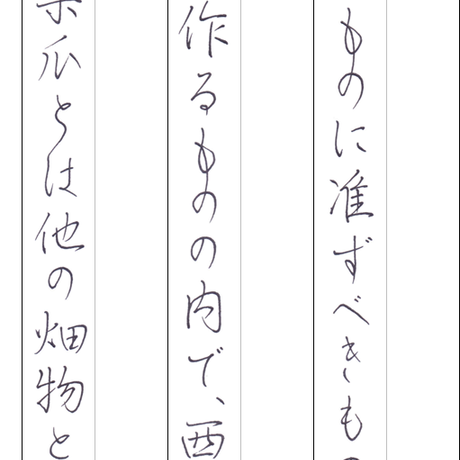 ものに准ずべきも
作るものの内で、西
瓜とは他の畑物と